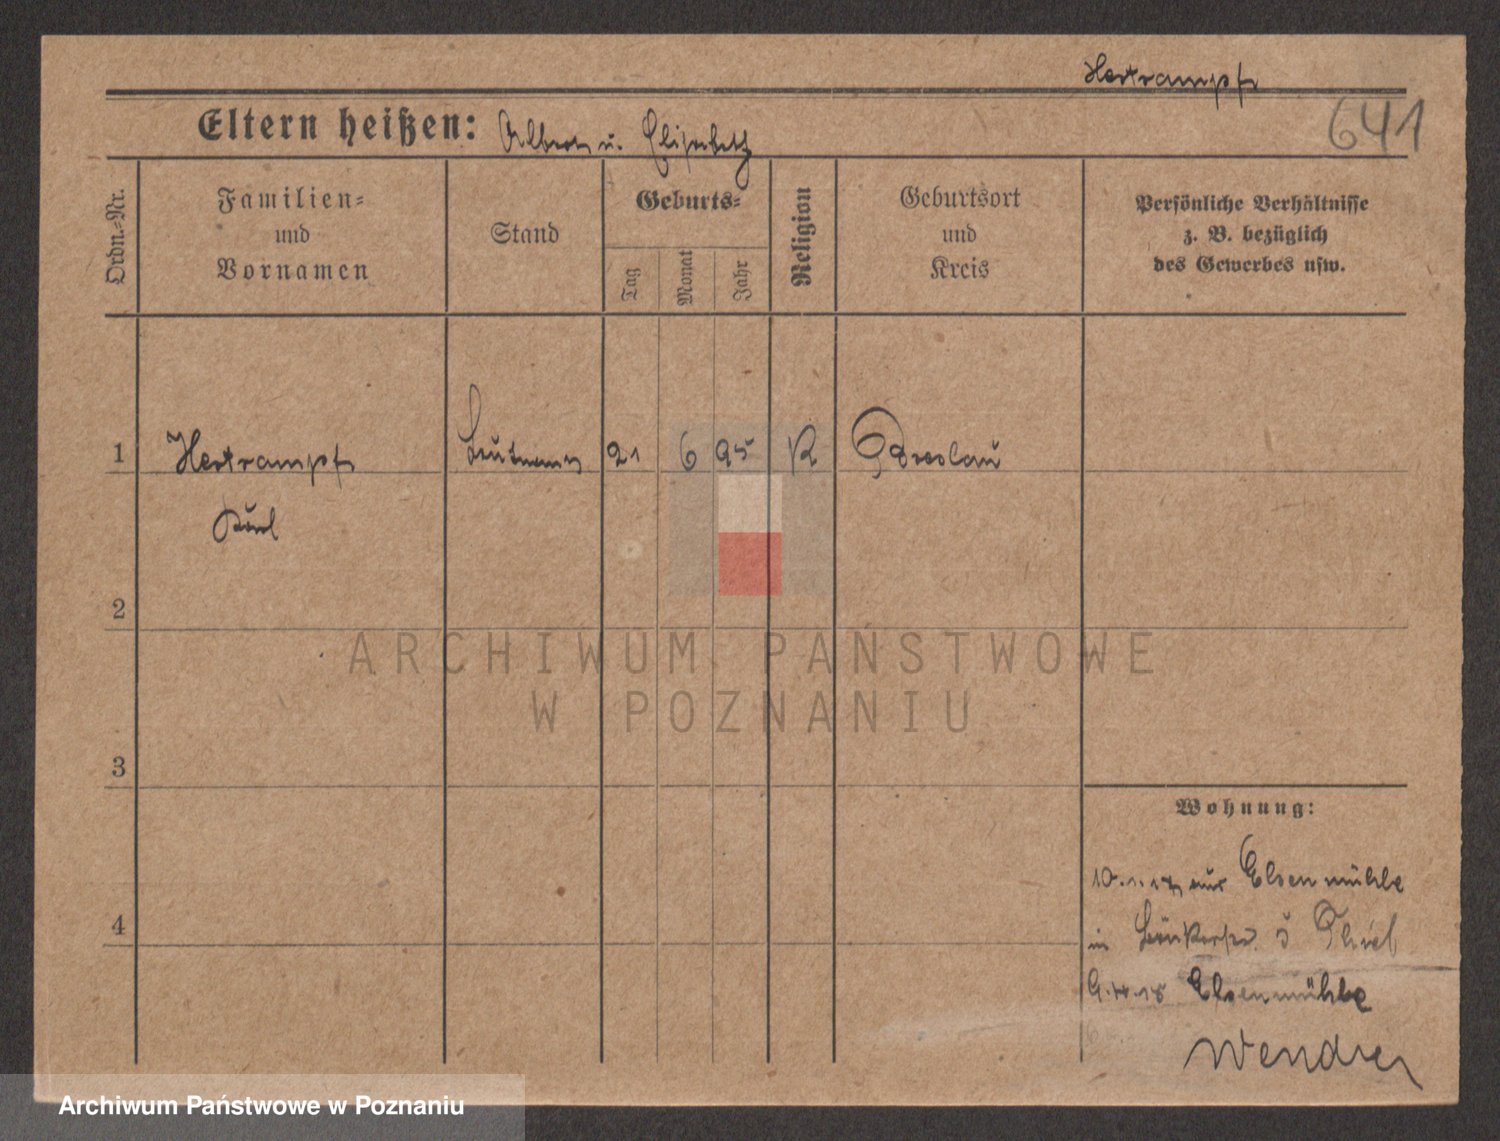 Hertrampf
641
Eltern heißen: Albert u. Elisabeth
Ordn.-Nr.
Familien-
und
Vornamen
Stand
Geburts-
Tag
Monat
Jahr
Religion
Geburtsort
und
Kreis
Persönliche Verhältnisse
z. B. bezüglich
des Gewerbes usw.
1 Hertrampf Leutnant 21 6 95 K Breslau
Karl
2
3
4
Wohnung:
Elsenmühle
in
Elsenmühle
ARCHIWUM PAŃSTWOWE
W POZNANIU
Archiwum Państwowe w Poznaniu